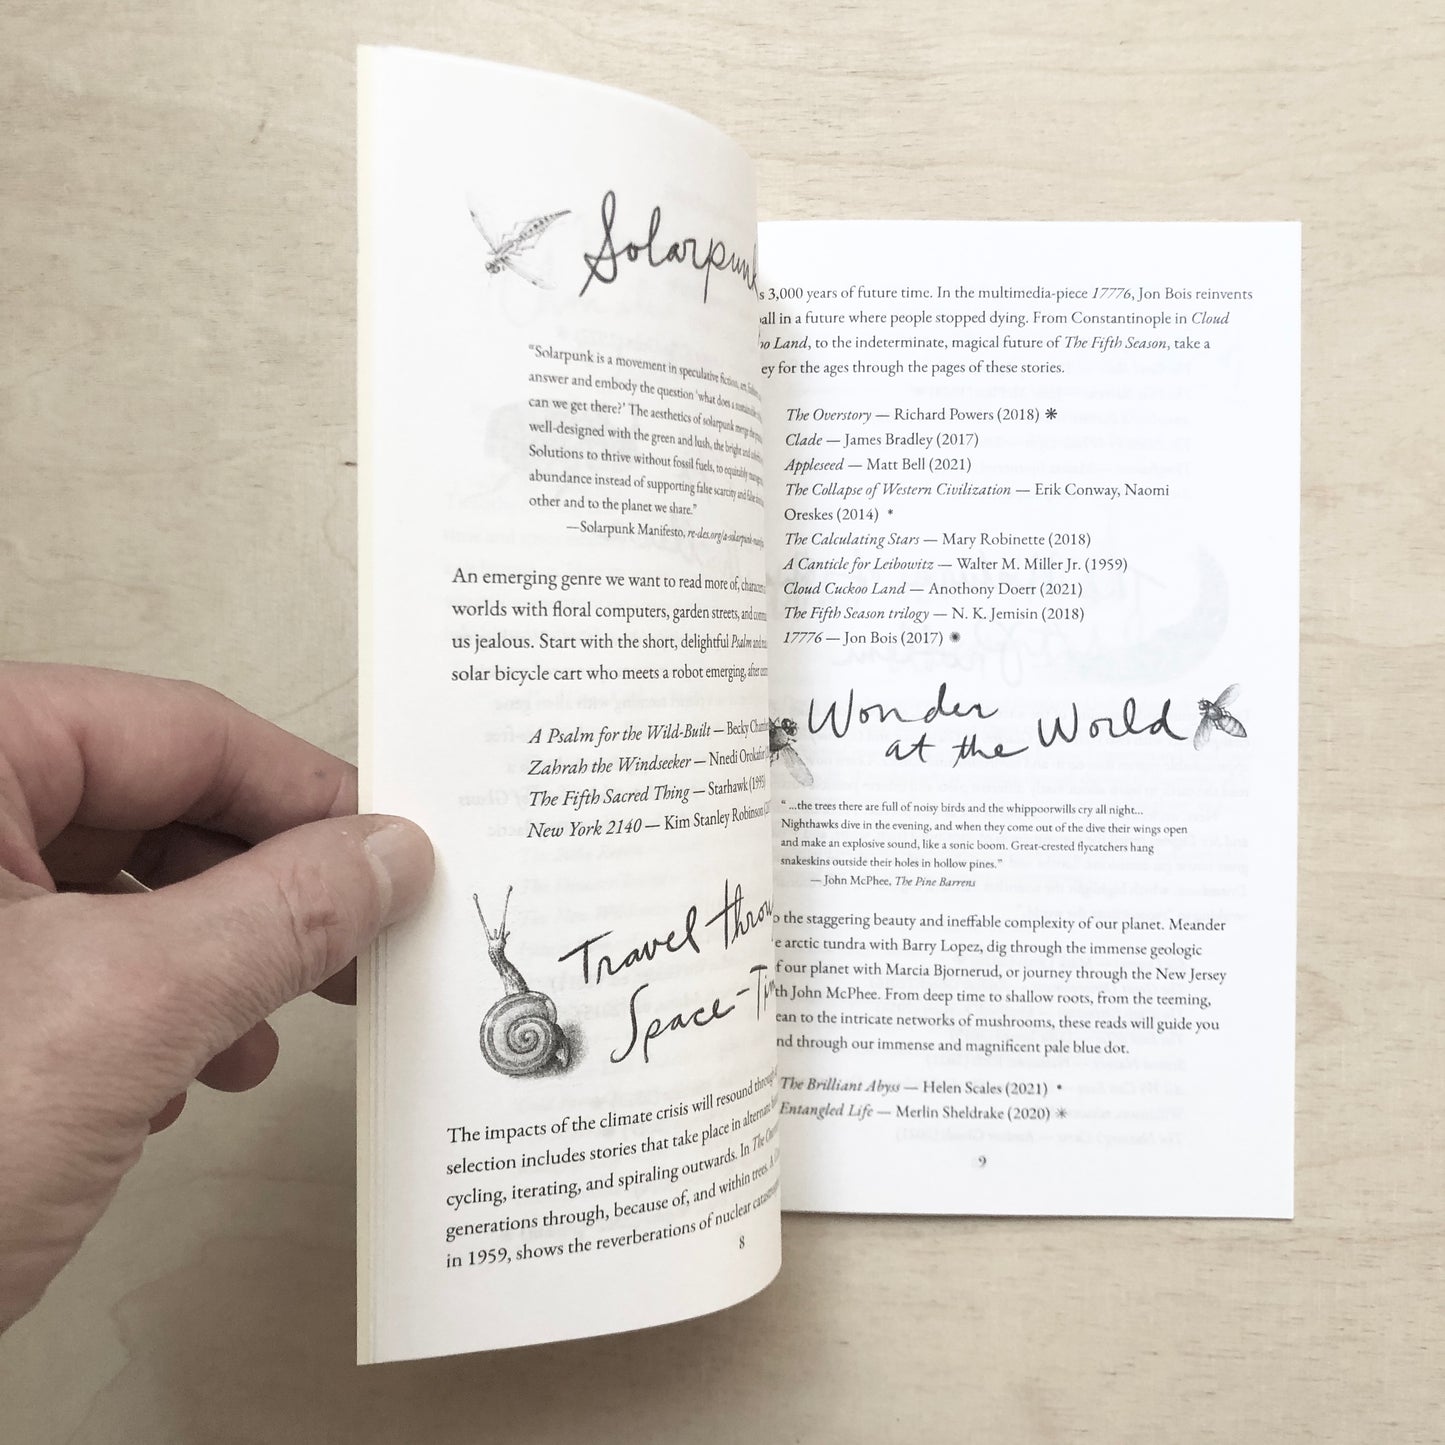 Solarpunk
“Solarpunk is a movement in speculative fiction, art, fashion
answer and embody the question ‘what does a sustainable
can we get there?’ The aesthetics of solarpunk merge the
well-designed with the green and lush, the bright and
Solutions to thrive without fossil fuels, to equitably
abundance instead of supporting false scarcity and false
other and to the planet we share.”
—Solarpunk Manifesto, re-des.org/a-solarpunk-manife
An emerging genre we want to read more of,
worlds with floral computers, garden streets, and
us jealous. Start with the short, delightful Psalm and
solar bicycle cart who meets a robot emerging, after
A Psalm for the Wild-Built — Becky Cham
Zahrah the Windseeker — Nnedi Orokafor
The Fifth Sacred Thing — Starhawk (1995)
New York 2140 — Kim Stanley Robinson
Travel throu
Space-Tim
The impacts of the climate crisis will resound through
selection includes stories that take place in alternate
cycling, iterating, and spiraling outwards. In The
generations through, because of, and within trees. A
in 1959, shows the reverberations of nuclear
8
s 3,000 years of future time. In the multimedia-piece 17776, Jon Bois reinvents
all in a future where people stopped dying. From Constantinople in Cloud
oo Land, to the indeterminate, magical future of The Fifth Season, take a
ey for the ages through the pages of these stories.
The Overstory — Richard Powers (2018) ❋
Clade — James Bradley (2017)
Appleseed — Matt Bell (2021)
The Collapse of Western Civilization — Erik Conway, Naomi
Oreskes (2014) *
The Calculating Stars — Mary Robinette (2018)
A Canticle for Leibowitz — Walter M. Miller Jr. (1959)
Cloud Cuckoo Land — Anothony Doerr (2021)
The Fifth Season trilogy — N. K. Jemisin (2018)
17776 — Jon Bois (2017) ✺
Wonder
at the World
“ ...the trees there are full of noisy birds and the whippoorwills cry all night...
Nighthawks dive in the evening, and when they come out of the dive their wings open
and make an explosive sound, like a sonic boom. Great-crested flycatchers hang
snakeskins outside their holes in hollow pines.”
— John McPhee, The Pine Barrens
o the staggering beauty and ineffable complexity of our planet. Meander
e arctic tundra with Barry Lopez, dig through the immense geologic
f our planet with Marcia Bjornerud, or journey through the New Jersey
th John McPhee. From deep time to shallow roots, from the teeming,
ean to the intricate networks of mushrooms, these reads will guide you
nd through our immense and magnificent pale blue dot.
The Brilliant Abyss — Helen Scales (2021) •
Entangled Life — Merlin Sheldrake (2020) ✳
9